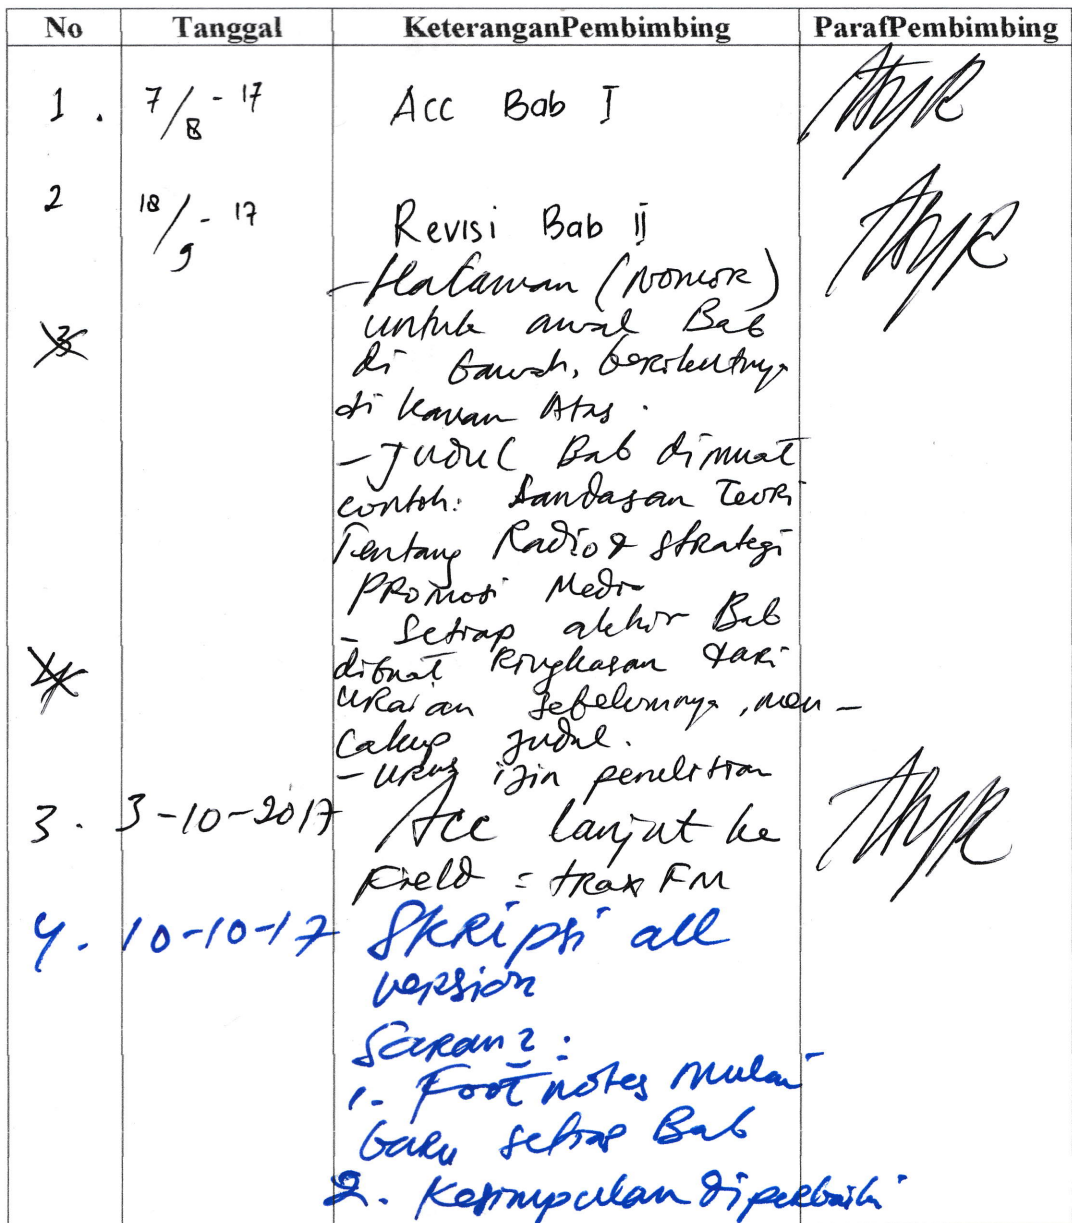 No Tanggal KeteranganPembimbing ParafPembimbing
1. 7/8-17 Acc Bab I
2 18/9-17 Revisi Bab II
- Halaman (Nomor)
untuk awal Bab
3
di bawah, berikutnya
di kanan Atas.
- Judul Bab dimuat
contoh: Landasan Teori
Tentang Radio & Strategi
Promosi Media
- Setiap akhir Bab
4
dibuat Ringkasan dari
uraian sebelumnya, men-
cakup judul.
- urus izin penelitian
3. 3-10-2017 Acc lanjut ke
Field = trax FM
4. 10-10-17 Skripsi all
version
Saran2:
1. Footnotes mulai
baru setiap Bab
2. Kesimpulan diperbaiki